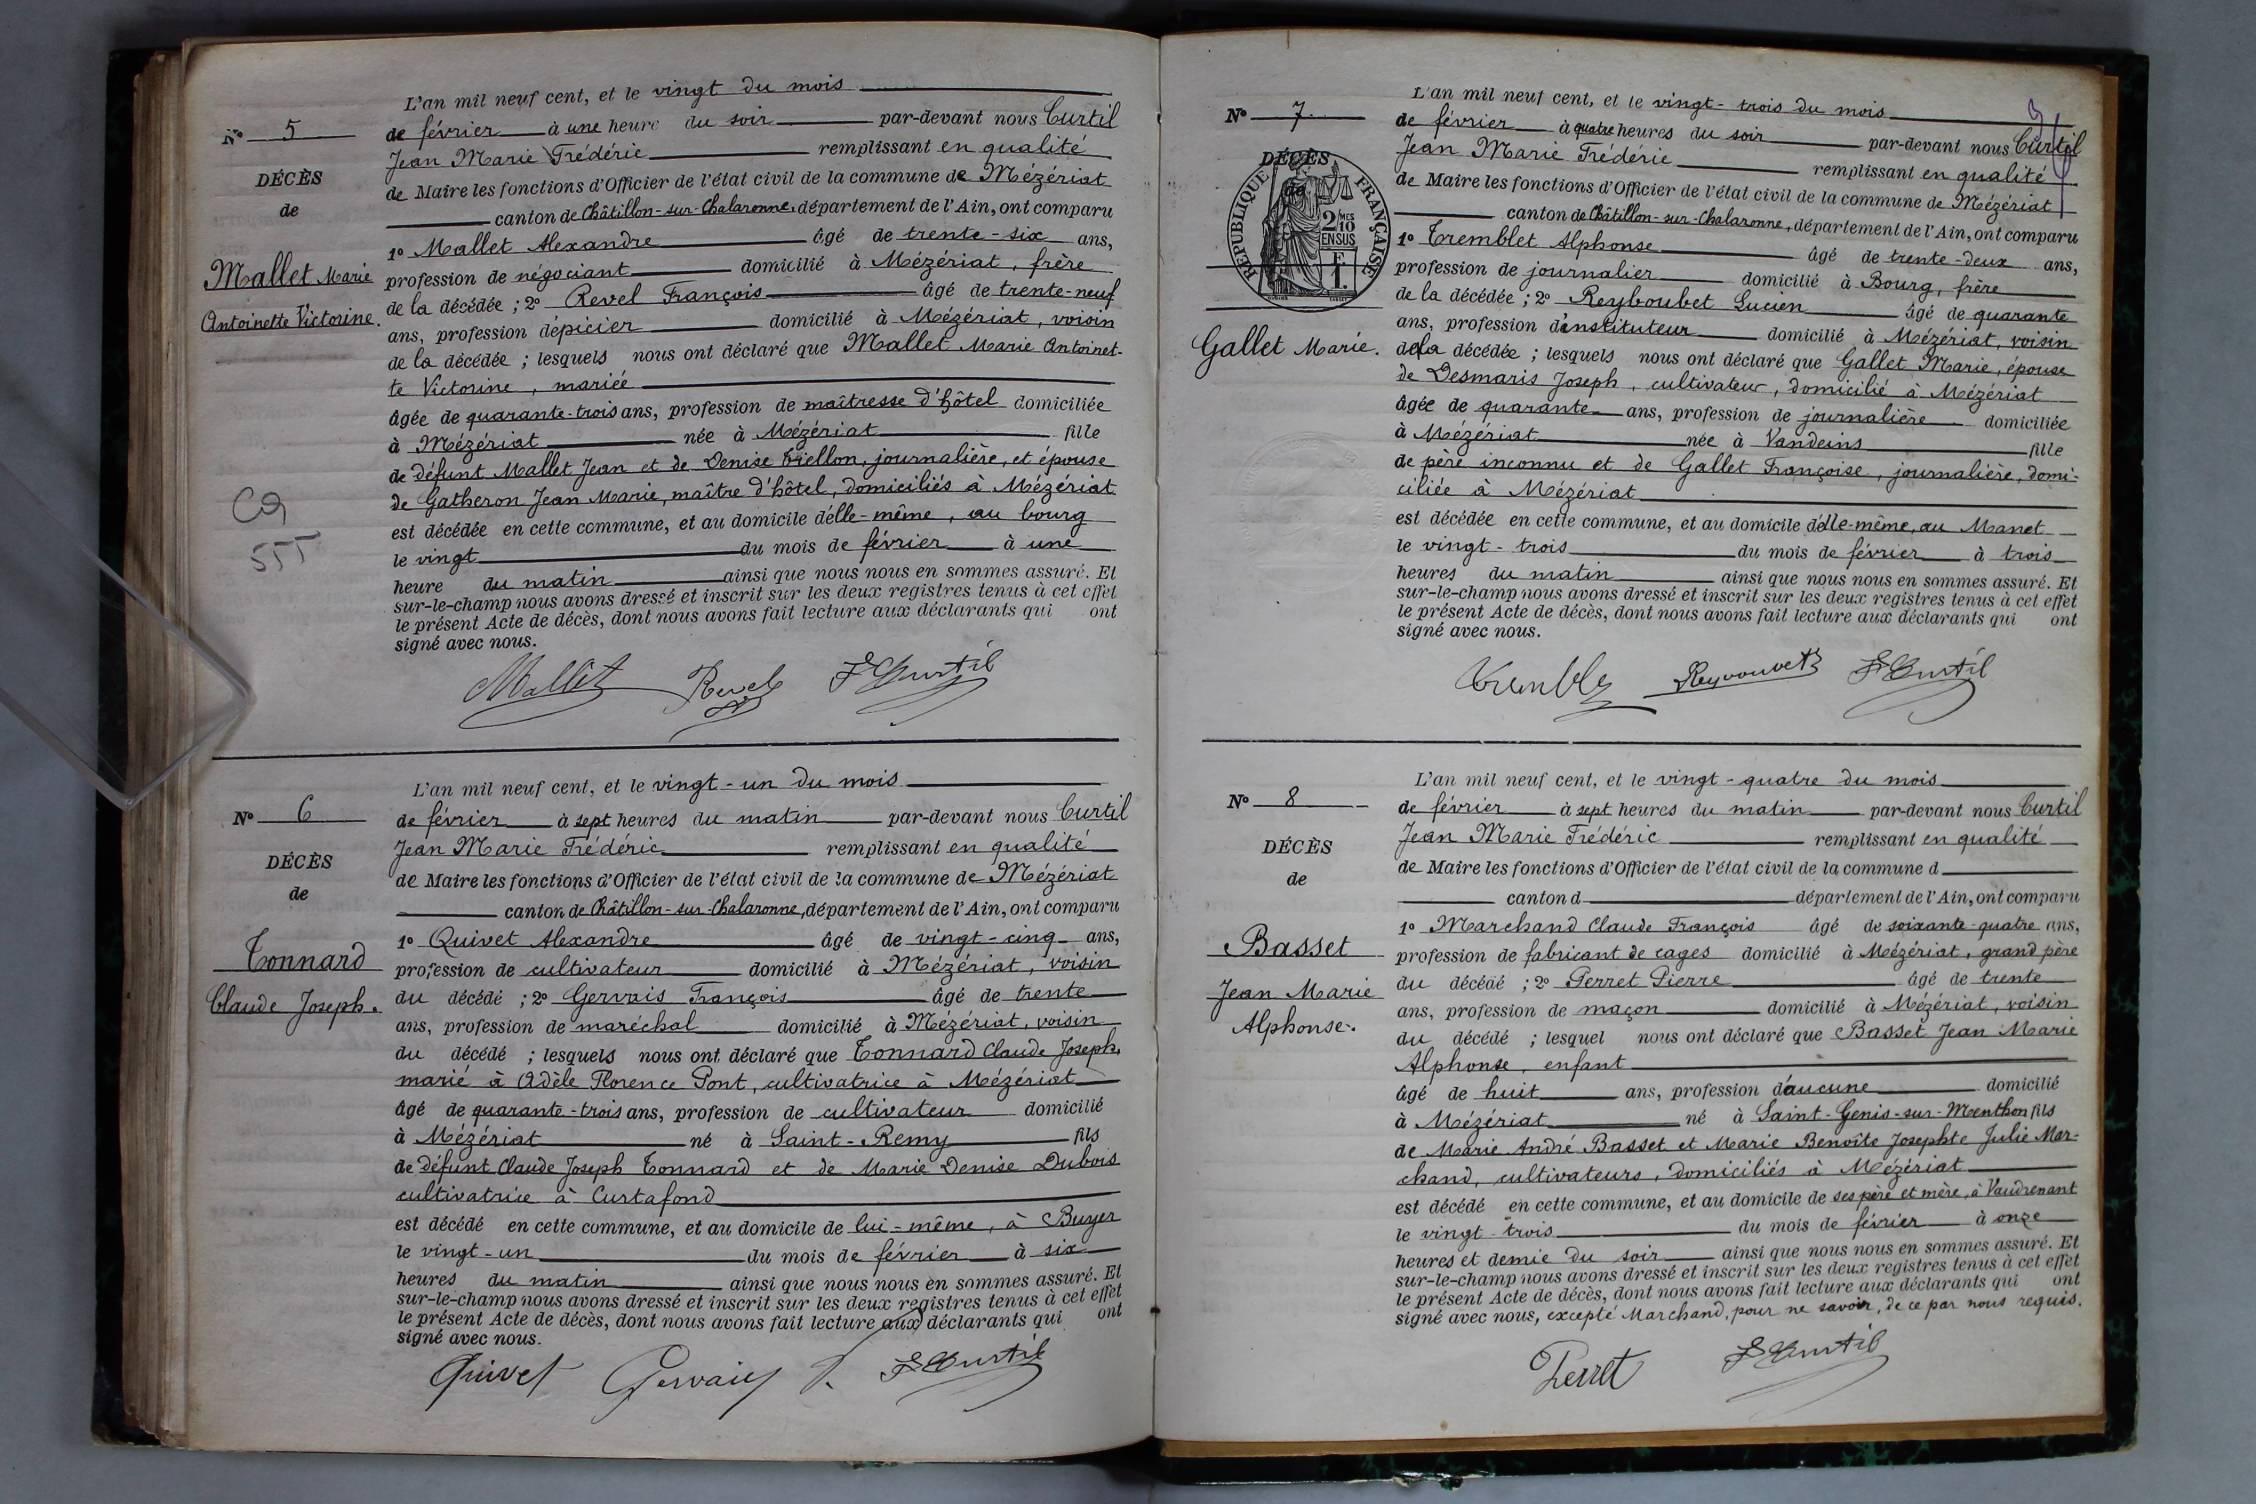 L'an mil neuf cent, et le vingt du mois
N° 5
de février à une heure du soir par-devant nous Curtil
Jean Marie Frédéric remplissant en qualité
DÉCÈS
de Maire les fonctions d'Officier de l'état civil de la commune de Mézériat
de
canton de Châtillon-sur-Chalaronne, département de l'Ain, ont comparu
1° Mallet Alexandre âgé de trente-six ans,
Mallet Marie
profession de négociant domicilié à Mézériat, frère
de la décédée ; 2° Revel François âgé de trente-neuf
Antoinette Victorine.
ans, profession d'épicier domicilié à Mézériat, voisin
de la décédée ; lesquels nous ont déclaré que Mallet Marie Antoinet-
te Victorine, mariée
âgée de quarante-trois ans, profession de maîtresse d'hôtel domiciliée
à Mézériat née à Mézériat fille
de défunt Mallet Jean et de Denise Vellon, journalière, et épouse
de Gatheron Jean Marie, maître d'hôtel, domiciliés à Mézériat
est décédée en cette commune, et au domicile d'elle-même, au bourg
le vingt du mois de février à une
555
heure du matin ainsi que nous nous en sommes assuré. Et
sur-le-champ nous avons dressé et inscrit sur les deux registres tenus à cet effet
le présent Acte de décès, dont nous avons fait lecture aux déclarants qui ont
signé avec nous.
Mallet Revel F Curtil
L'an mil neuf cent, et le vingt-un du mois
N° 6
de février à sept heures du matin par-devant nous Curtil
Jean Marie Frédéric remplissant en qualité
DÉCÈS
de Maire les fonctions d'Officier de l'état civil de la commune de Mézériat
de
canton de Châtillon-sur-Chalaronne, département de l'Ain, ont comparu
1° Quivet Alexandre âgé de vingt-cinq ans,
Tonnard
profession de cultivateur domicilié à Mézériat, voisin
Claude Joseph.
du décédé ; 2° Gervais François âgé de trente
ans, profession de maréchal domicilié à Mézériat, voisin
du décédé ; lesquels nous ont déclaré que Tonnard Claude Joseph,
marié à Adèle Florence Pont, cultivatrice à Mézériat
âgé de quarante-trois ans, profession de cultivateur domicilié
à Mézériat né à Saint-Remy fils
de défunt Claude Joseph Tonnard et de Marie Denise Dubois
cultivatrice à Curtafond
est décédé en cette commune, et au domicile de lui-même, à Buyer
le vingt-un du mois de février à six
heures du matin ainsi que nous nous en sommes assuré. Et
sur-le-champ nous avons dressé et inscrit sur les deux registres tenus à cet effet
le présent Acte de décès, dont nous avons fait lecture aux déclarants qui ont
signé avec nous.
Quivet Gervais F Curtil
L'an mil neuf cent, et le vingt-trois du mois
N° 7
de février à quatre heures du soir par-devant nous Curtil
Jean Marie Frédéric remplissant en qualité
DÉCÈS
de Maire les fonctions d'Officier de l'état civil de la commune de Mézériat
de
RÉPUBLIQUE FRANÇAISE
2/10 MES
EN SUS
F
1.
canton de Châtillon-sur-Chalaronne, département de l'Ain, ont comparu
1° Tremblet Alphonse âgé de trente-deux ans,
profession de journalier domicilié à Bourg, frère
de la décédée ; 2° Reyboubet Lucien âgé de quarante
ans, profession d'instituteur domicilié à Mézériat, voisin
Gallet Marie.
de la décédée ; lesquels nous ont déclaré que Gallet Marie, épouse
de Desmaris Joseph, cultivateur, domicilié à Mézériat
âgée de quarante ans, profession de journalière domiciliée
à Mézériat née à Vandeins fille
de père inconnu et de Gallet Françoise, journalière, domi-
ciliée à Mézériat
est décédée en cette commune, et au domicile d'elle-même, au Manet
le vingt-trois du mois de février à trois
heures du matin ainsi que nous nous en sommes assuré. Et
sur-le-champ nous avons dressé et inscrit sur les deux registres tenus à cet effet
le présent Acte de décès, dont nous avons fait lecture aux déclarants qui ont
signé avec nous.
Reyvouvet F Curtil
L'an mil neuf cent, et le vingt-quatre du mois
N° 8
de février à sept heures du matin par-devant nous Curtil
Jean Marie Frédéric remplissant en qualité
DÉCÈS
de Maire les fonctions d'Officier de l'état civil de la commune d
de
canton d département de l'Ain, ont comparu
1° Marchand Claude François âgé de soixante-quatre ans,
Basset
profession de fabricant de cages domicilié à Mézériat, grand père
Jean Marie
du décédé ; 2° Perret Pierre âgé de trente
ans, profession de maçon domicilié à Mézériat, voisin
Alphonse.
du décédé ; lesquel nous ont déclaré que Basset Jean Marie
Alphonse, enfant
âgé de huit ans, profession d'aucune domicilié
à Mézériat né à Saint-Genis-sur-Menthon fils
de Marie André Basset et Marie Benoîte Josephte Julie Mar-
chand, cultivateurs, domiciliés à Mézériat
est décédé en cette commune, et au domicile de ses père et mère, à Vaudrenant
le vingt-trois du mois de février à onze
heures et demie du soir ainsi que nous nous en sommes assuré. Et
sur-le-champ nous avons dressé et inscrit sur les deux registres tenus à cet effet
le présent Acte de décès, dont nous avons fait lecture aux déclarants qui ont
signé avec nous, excepté Marchand, pour ne savoir, de ce par nous requis.
Perret F Curtil